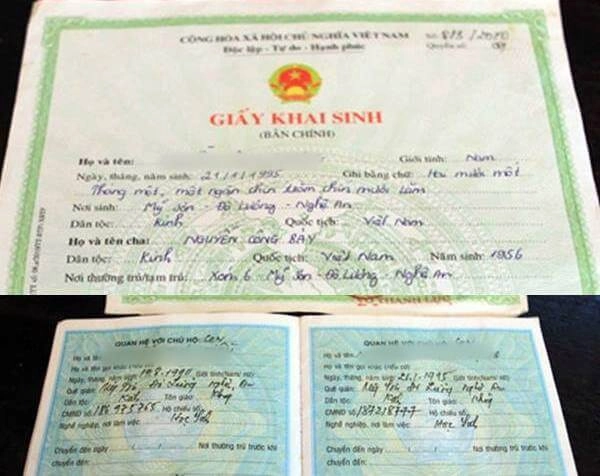 CỘNG HÒA XÃ HỘI CHỦ NGHĨA VIỆT NAM
Độc lập - Tự do - Hạnh phúc
Số 813 / 2010
Quyển số
GIẤY KHAI SINH
(BẢN CHÍNH)
Họ và tên: Giới tính: Nam
Ngày, tháng, năm sinh: 21/1/1995 Ghi bằng chữ: Hai mươi mốt
Tháng một, một ngàn chín trăm chín mươi lăm
Nơi sinh: Mỹ Sơn - Đô Lương - Nghệ An
Dân tộc: Kinh Quốc tịch: Việt Nam
Họ và tên cha: NGUYỄN CÔNG BẢY
Dân tộc: Kinh Quốc tịch: Việt Nam Năm sinh: 1956
Nơi thường trú/tạm trú: Xóm 6 Mỹ Sơn - Đô Lương - Nghệ An
QUAN HỆ VỚI CHỦ HỘ: Con
Họ và tên:
Họ và tên gọi khác (nếu có)
Ngày, tháng, năm sinh: Giới tính(Nam/ nữ)
Quê quán: Đô Lương Nghệ An
Dân tộc: Kinh Tôn giáo: Không
CMND số: Hộ chiếu số:
Nghề nghiệp, nơi làm việc: Học sinh
Chuyển đến ngày Nơi thường trú trước khi
chuyển đến:
QUAN HỆ VỚI CHỦ HỘ: Con
Họ và tên:
Họ và tên gọi khác (nếu có)
Ngày, tháng, năm sinh: 21-1-1995 Giới tính(Nam/ nữ)
Quê quán: Đô Lương Nghệ An
Dân tộc: Kinh Tôn giáo: Không
CMND số: Hộ chiếu số:
Nghề nghiệp, nơi làm việc: Học sinh
Chuyển đến ngày Nơi thường trú trước khi
chuyển đến: